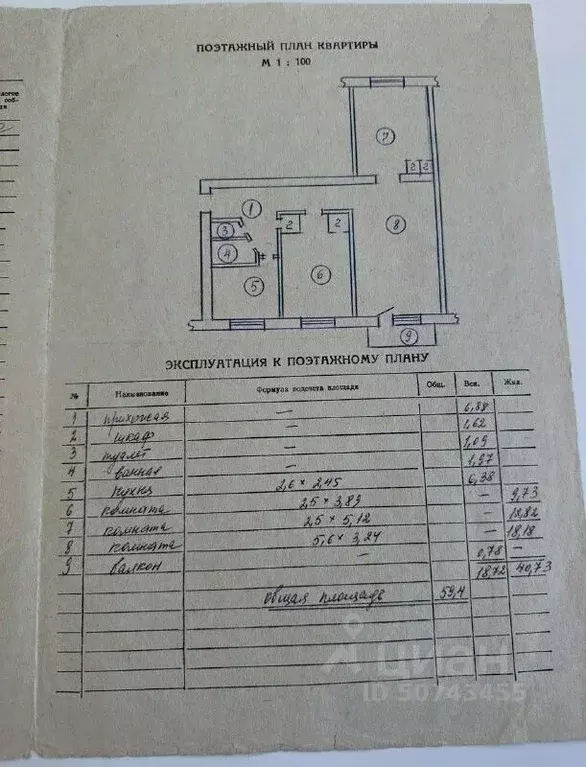 ПОЭТАЖНЫЙ ПЛАН КВАРТИРЫ
М 1 : 100
7
2 2
1
2 2
8
3
4
6
5
9
ЭКСПЛУАТАЦИЯ К ПОЭТАЖНОМУ ПЛАНУ
№ Наименование Формула подсчета площади Общ. Всп. Жил.
1 прихожая — 6,88
2 шкаф — 1,62
3 туалет — 1,09
4 ванная — 1,97
5 кухня 2,6 × 2,45 6,38
6 комната 2,5 × 3,89 — 9,73
7 комната 2,5 × 5,12 — 12,82
8 комната 5,6 × 3,24 — 18,18
9 балкон — 0,78 —
18,72 40,73
общая площадь 59,4
Циан
ID 50743455